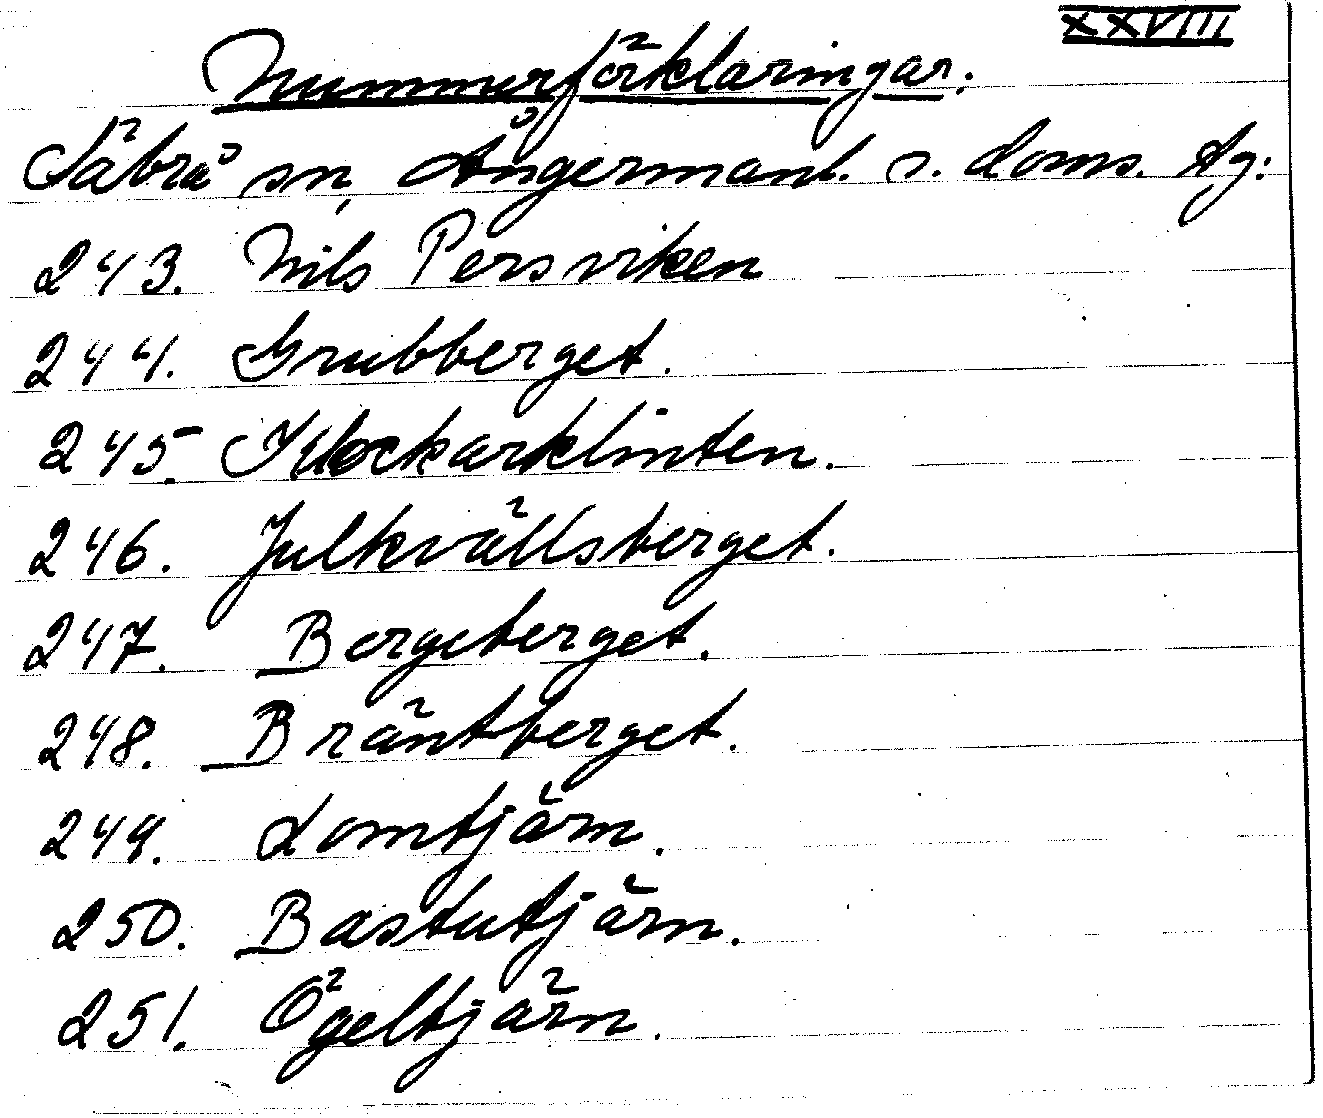 XXVIII
Nummerförklaringar.
Säbrå sn, Ångermanl. s. doms. dg:
243. Nils Persviken
244. Grubberget.
245. Klockarklinten.
246. Julkvällsberget.
247. Bergeberget.
248. Bräntberget.
249. Lomtjärn.
250. Bastutjärn.
251. Ögeltjärn.